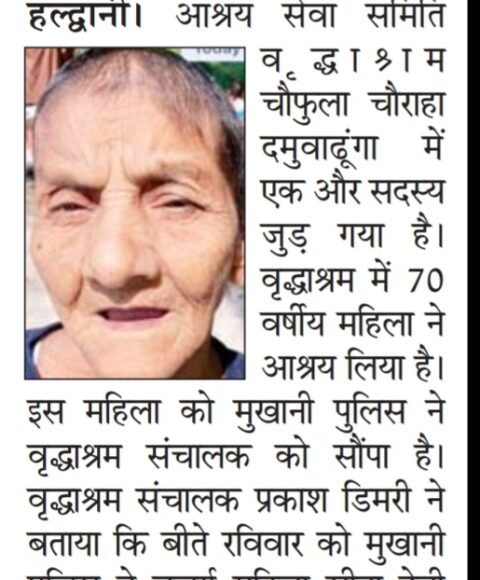 हल्द्वानी। आश्रय सेवा समिति
वृद्धाश्रम
चौफुला चौराहा
दमुवाढूंगा में
एक और सदस्य
जुड़ गया है।
वृद्धाश्रम में 70
वर्षीय महिला ने
आश्रय लिया है।
इस महिला को मुखानी पुलिस ने
वृद्धाश्रम संचालक को सौंपा है।
वृद्धाश्रम संचालक प्रकाश डिमरी ने
बताया कि बीते रविवार को मुखानी